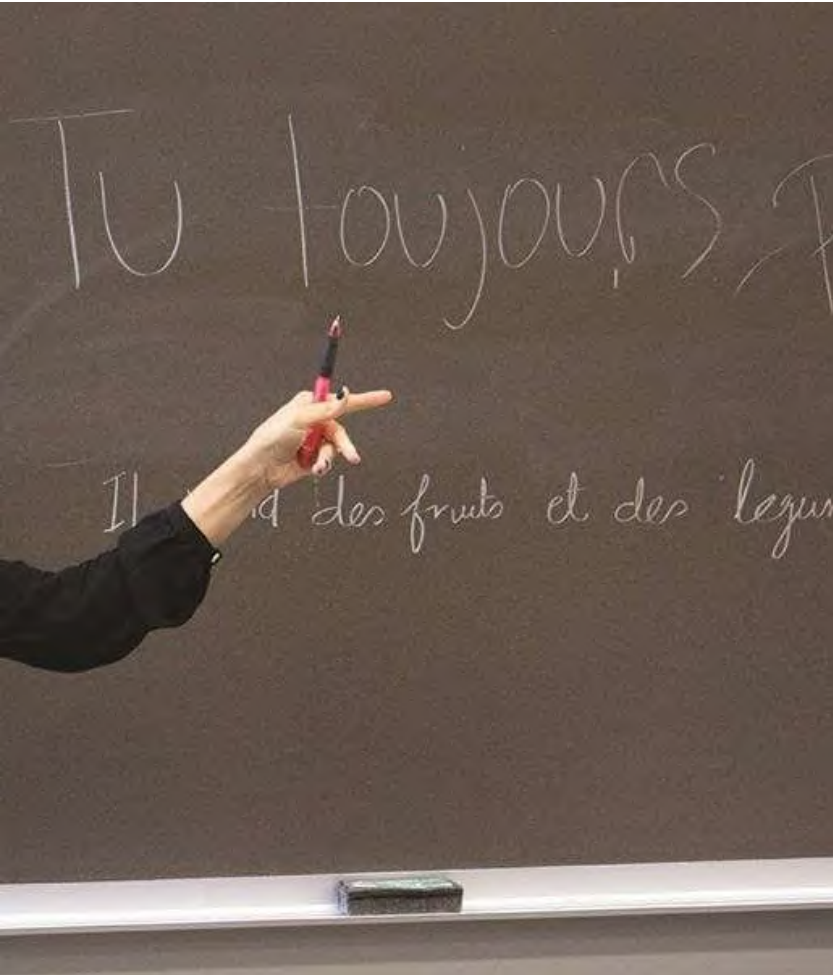 Tu toujours
Il des fruits et des